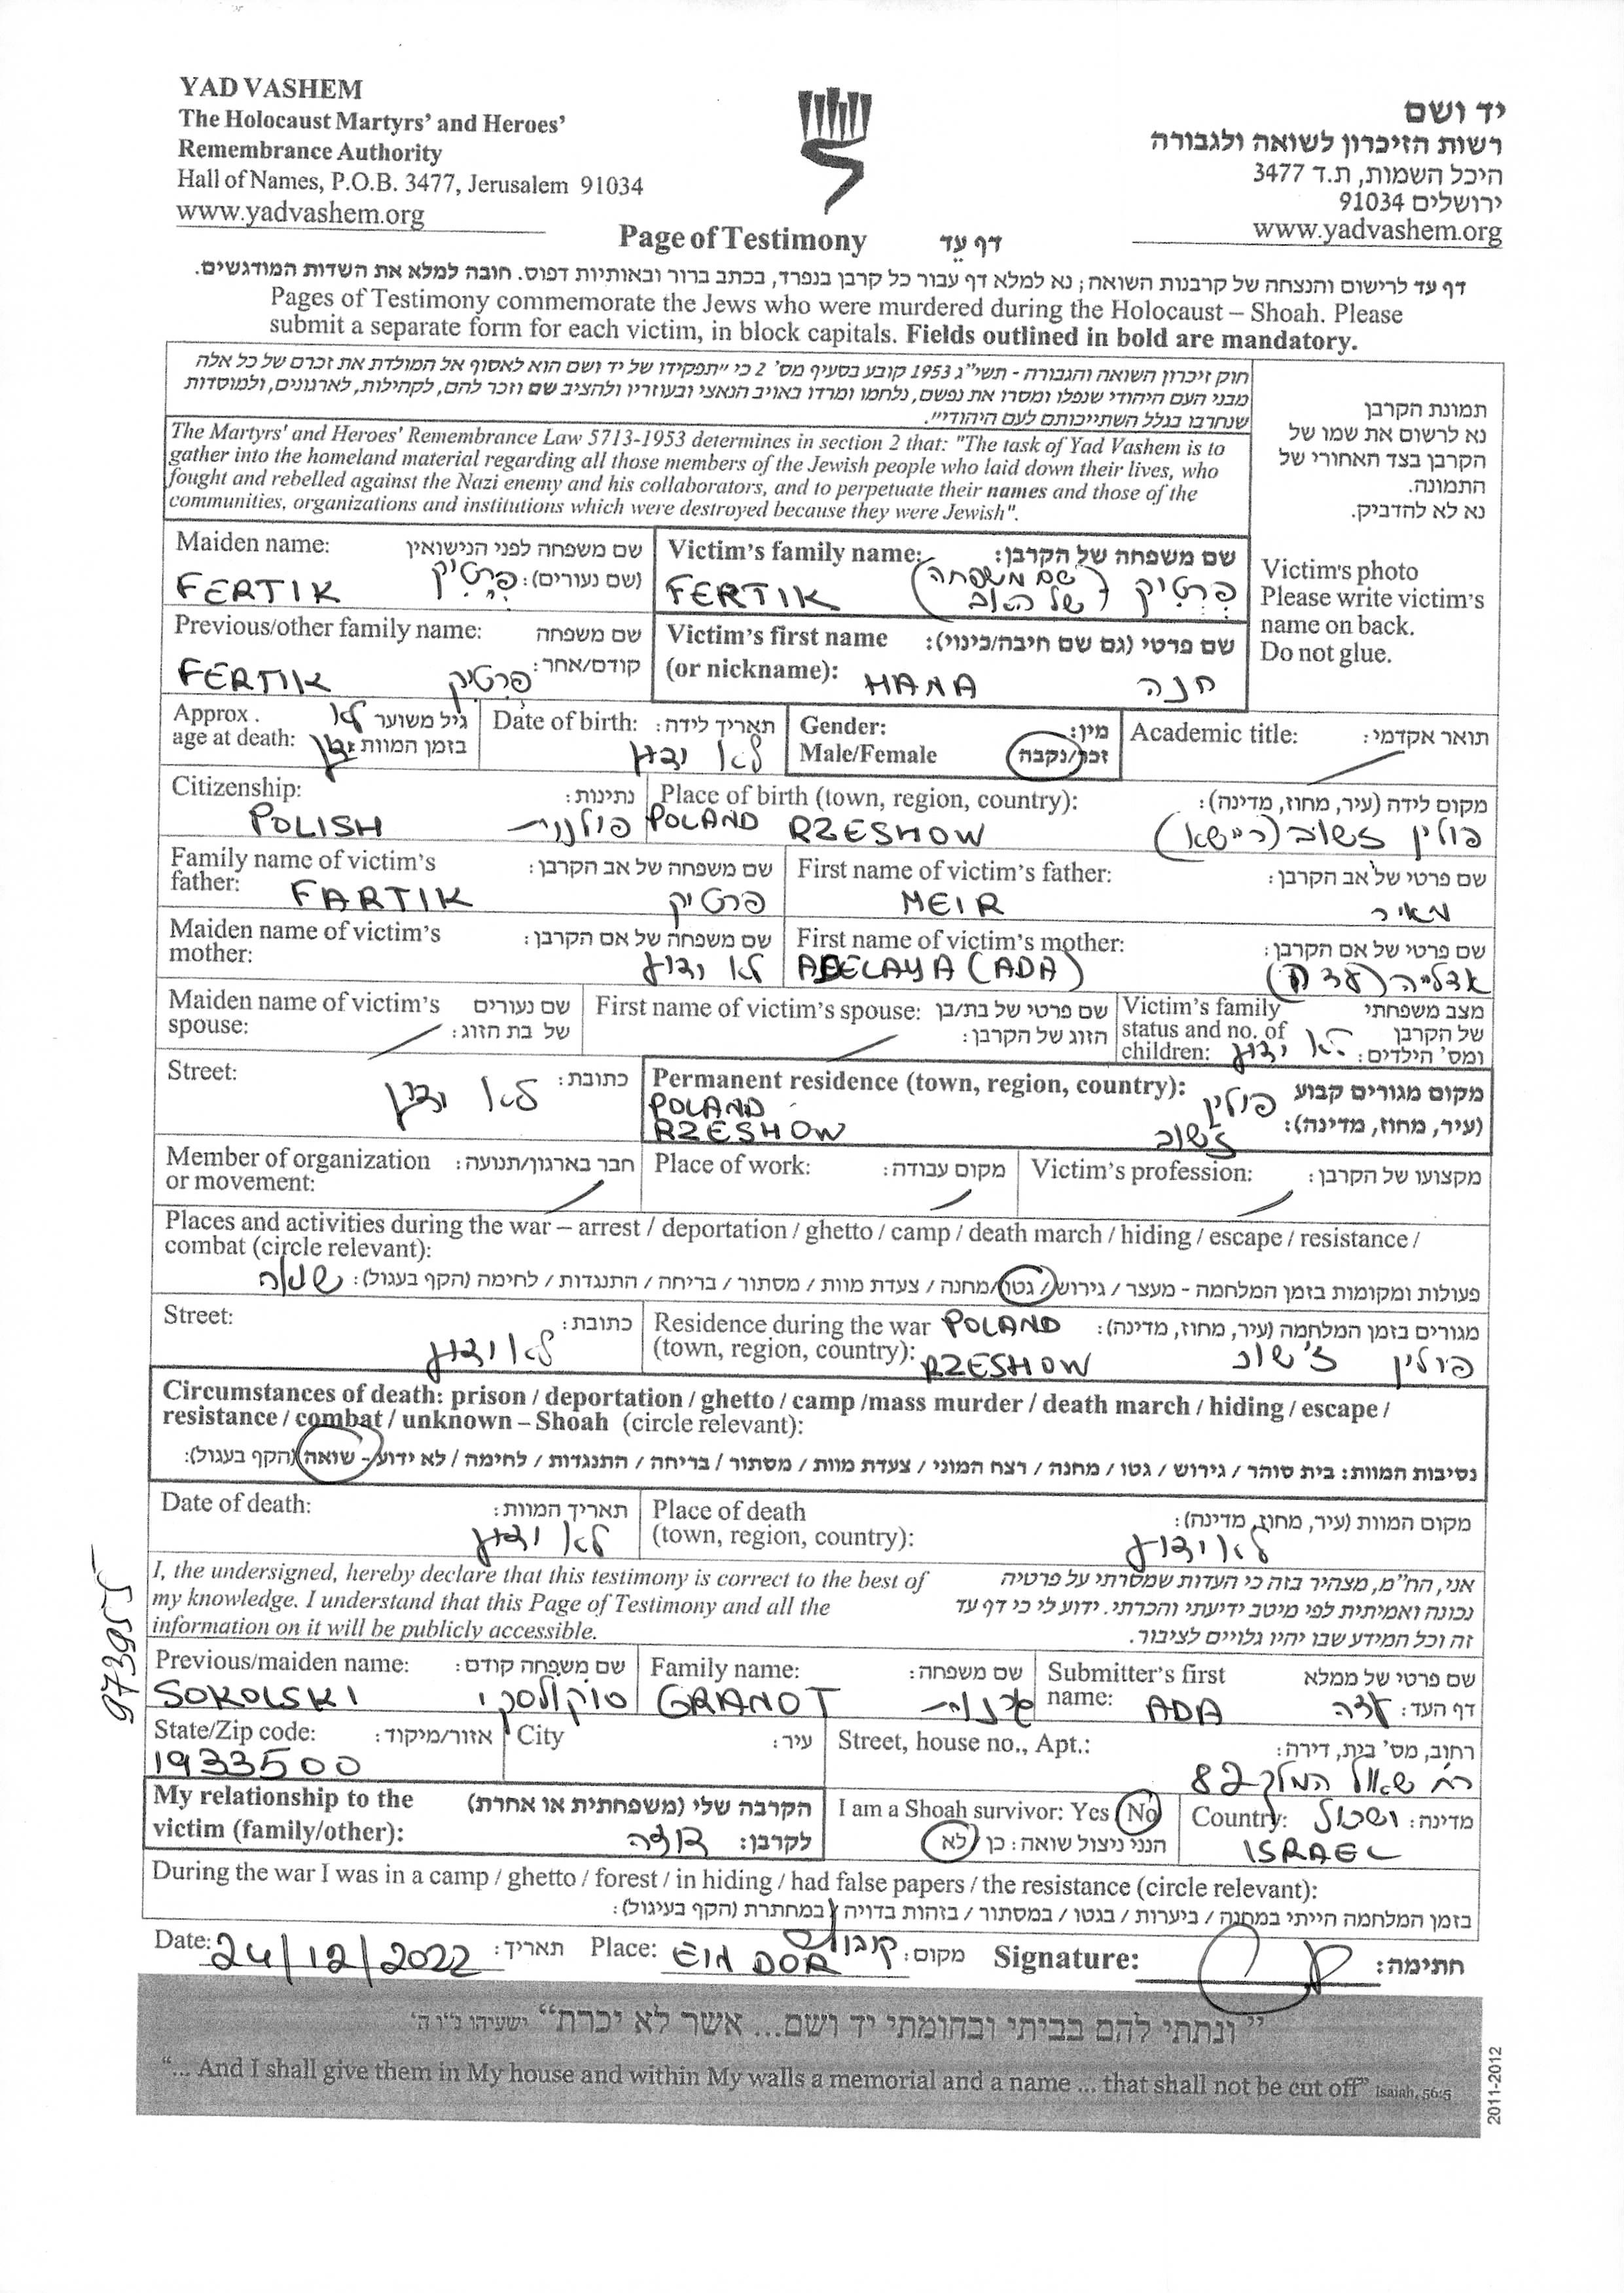 YAD VASHEM
The Holocaust Martyrs' and Heroes'
Remembrance Authority
Hall of Names, P.O.B. 3477, Jerusalem 91034
www.yadvashem.org
יד ושם
רשות הזיכרון לשואה ולגבורה
היכל השמות, ת.ד 3477
ירושלים 91034
www.yadvashem.org
Page of Testimony דף עֵד
דף עד לרישום והנצחה של קרבנות השואה; נא למלא דף עבור כל קרבן בנפרד, בכתב ברור ובאותיות דפוס. חובה למלא את השדות המודגשים.
Pages of Testimony commemorate the Jews who were murdered during the Holocaust – Shoah. Please
submit a separate form for each victim, in block capitals. Fields outlined in bold are mandatory.
חוק זיכרון השואה והגבורה - תשי"ג 1953 קובע בסעיף מס' 2 כי "תפקידו של יד ושם הוא לאסוף אל המולדת את זכרם של כל אלה
מבני העם היהודי שנפלו ומסרו את נפשם, נלחמו ומרדו באויב הנאצי ובעוזריו ולהציב שם וזכר להם, לקהילות, לארגונים, ולמוסדות
שנחרבו בגלל השתייכותם לעם היהודי".
The Martyrs' and Heroes' Remembrance Law 5713-1953 determines in section 2 that: "The task of Yad Vashem is to
gather into the homeland material regarding all those members of the Jewish people who laid down their lives, who
fought and rebelled against the Nazi enemy and his collaborators, and to perpetuate their names and those of the
communities, organizations and institutions which were destroyed because they were Jewish".
תמונת הקרבן
נא לרשום את שמו של
הקרבן בצד האחורי של
התמונה.
נא לא להדביק.
Victim's photo
Please write victim's
name on back.
Do not glue.
Maiden name: שם משפחה לפני הנישואין
(שם נעורים): פרטיק FERTIK
Victim's family name: שם משפחה של הקרבן:
FERTIK פרטיק (שם משפחה של האב)
Previous/other family name: שם משפחה
קודם/אחר: פרטיק FERTIK
Victim's first name שם פרטי (גם שם חיבה/כינוי):
(or nickname): HANA חנה
Approx. גיל משוער לא
age at death: בזמן המוות: ידוע
Date of birth: תאריך לידה:
לא ידוע
Gender: מין:
Male/Female זכר/נקבה
Academic title: תואר אקדמי:
Citizenship: נתינות:
POLISH פולנית
Place of birth (town, region, country): מקום לידה (עיר, מחוז, מדינה):
POLAND RZESHOW פולין זשוב (ריישא)
Family name of victim's שם משפחה של אב הקרבן:
father: FARTIK פרטיק
First name of victim's father: שם פרטי של אב הקרבן:
MEIR מאיר
Maiden name of victim's שם משפחה של אם הקרבן:
mother: לא ידוע
First name of victim's mother: שם פרטי של אם הקרבן:
ADELAYA (ADA) אדלייה (עדה)
Maiden name of victim's שם נעורים
spouse: של בת הזוג:
First name of victim's spouse: שם פרטי של בת/בן
הזוג של הקרבן:
Victim's family מצב משפחתי
status and no. of של הקרבן
children: לא ידוע ומס' הילדים:
Street: כתובת:
לא ידוע
Permanent residence (town, region, country): מקום מגורים קבוע
POLAND פולין (עיר, מחוז, מדינה):
RZESHOW זשוב
Member of organization חבר בארגון/תנועה:
or movement:
Place of work: מקום עבודה:
Victim's profession: מקצועו של הקרבן:
Places and activities during the war – arrest / deportation / ghetto / camp / death march / hiding / escape / resistance /
combat (circle relevant):
פעולות ומקומות בזמן המלחמה - מעצר / גירוש / גטו / מחנה / צעדת מוות / מסתור / בריחה / התנגדות / לחימה (הקף בעגול): שואה
Street: כתובת:
לא ידוע
Residence during the war POLAND מגורים בזמן המלחמה (עיר, מחוז, מדינה):
(town, region, country): RZESHOW פולין ז'שוב
Circumstances of death: prison / deportation / ghetto / camp /mass murder / death march / hiding / escape /
resistance / combat / unknown – Shoah (circle relevant):
נסיבות המוות: בית סוהר / גירוש / גטו / מחנה / רצח המוני / צעדת מוות / מסתור / בריחה / התנגדות / לחימה / לא ידוע - שואה (הקף בעגול):
Date of death: תאריך המוות:
לא ידוע
Place of death מקום המוות (עיר, מחוז, מדינה):
(town, region, country): לא ידוע
I, the undersigned, hereby declare that this testimony is correct to the best of
my knowledge. I understand that this Page of Testimony and all the
information on it will be publicly accessible.
אני, הח"מ, מצהיר בזה כי העדות שמסרתי על פרטיה
נכונה ואמיתית לפי מיטב ידיעתי והכרתי. ידוע לי כי דף עד
זה וכל המידע שבו יהיו גלויים לציבור.
973955
Previous/maiden name: שם משפחה קודם:
SOKOLSKI סוקולסקי
Family name: שם משפחה:
GRANOT גרנות
Submitter's first שם פרטי של ממלא
name: ADA דף העד: עדה
State/Zip code: אזור/מיקוד:
1933500
City עיר:
Street, house no., Apt.: רחוב, מס' בית, דירה:
רח' שאול המלך 82
My relationship to the הקרבה שלי (משפחתית או אחרת)
victim (family/other): לקרבן: דודה
I am a Shoah survivor: Yes No
הנני ניצול שואה: כן / לא
Country: מדינה:
ISRAEL
During the war I was in a camp / ghetto / forest / in hiding / had false papers / the resistance (circle relevant):
בזמן המלחמה הייתי במחנה / ביערות / בגטו / במסתור / בזהות בדויה / במחתרת (הקף בעיגול):
Date: 24/12/2022 תאריך: Place: EIN DOR קיבוץ מקום: Signature: חתימה:
"ונתתי להם בביתי ובחומתי יד ושם... אשר לא יכרת" ישעיהו נ"ו ה'
"... And I shall give them in My house and within My walls a memorial and a name ... that shall not be cut off" Isaiah, 56:5
2011-2012